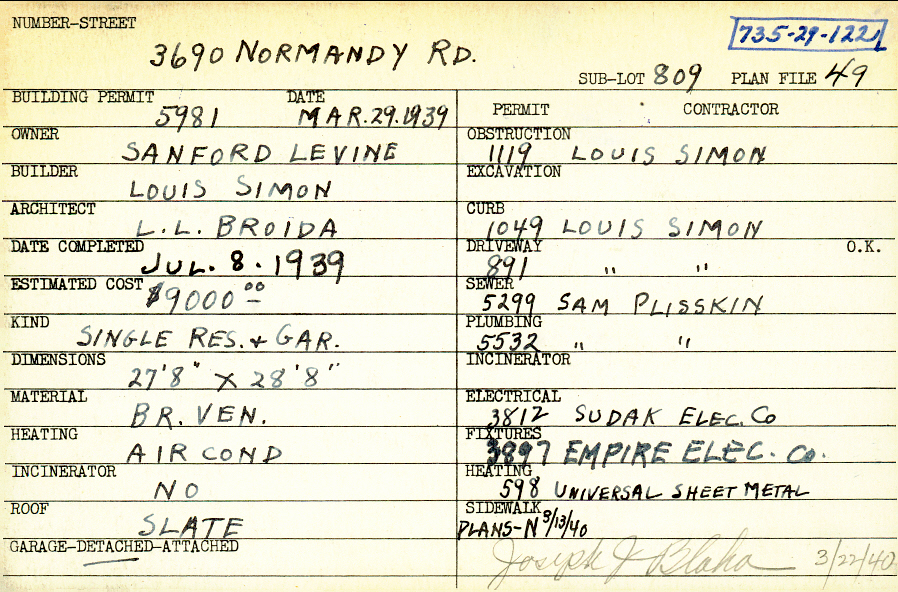 NUMBER-STREET
735-29-122
3690 NORMANDY RD.
SUB-LOT 809 PLAN FILE 49
BUILDING PERMIT DATE
5981 MAR.29.1939
OWNER
SANFORD LEVINE
BUILDER
LOUIS SIMON
ARCHITECT
L.L. BROIDA
DATE COMPLETED
JUL. 8. 1939
ESTIMATED COST
$9000 00
KIND
SINGLE RES. & GAR.
DIMENSIONS
27'8" X 28'8"
MATERIAL
BR. VEN.
HEATING
AIR COND
INCINERATOR
NO
ROOF
SLATE
GARAGE-DETACHED-ATTACHED
PERMIT CONTRACTOR
OBSTRUCTION
1119 LOUIS SIMON
EXCAVATION
CURB
1049 LOUIS SIMON
DRIVEWAY O.K.
891 " "
SEWER
5299 SAM PLISSKIN
PLUMBING
5532 " "
INCINERATOR
ELECTRICAL
3812 SUDAK ELEC. CO
FIXTURES
3897 EMPIRE ELEC. Co.
HEATING
598 UNIVERSAL SHEET METAL
SIDEWALK
PLANS-N 3/13/40
Joseph J Blaha 3/22/40